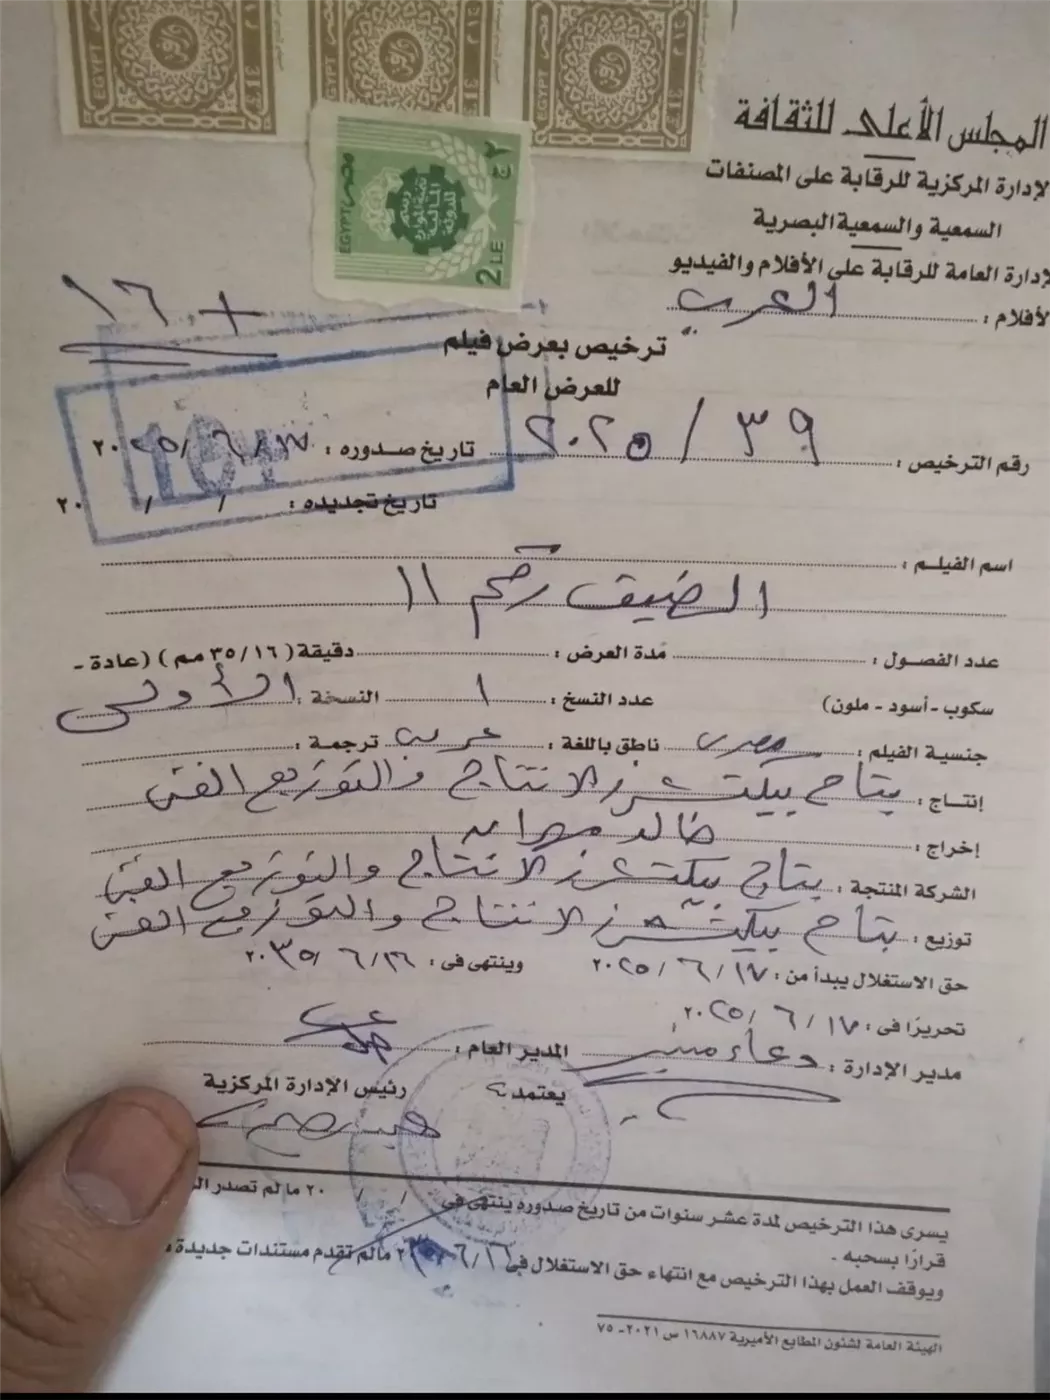 EGYPT مصر
EGYPT مصر
EGYPT مصر
EGYPT مصر
٢ ج
2 LE
المجلس الأعلى للثقافة
لإدارة المركزية للرقابة على المصنفات
السمعية والسمعية البصرية
لإدارة العامة للرقابة على الأفلام والفيديو
لأفلام : العربية
+ ١٦
ترخيص بعرض فيلم
للعرض العام
رقم الترخيص : ٣٩ / ٢٠٢٥ تاريخ صدوره : ١٧ / ٦ / ٢٠٢٥
تاريخ تجديده : / / ٢٠
اسم الفيلم :
الضيف رقم ١١
عدد الفصول : مدة العرض : دقيقة ( ٣٥/١٦ مم ) (عادة -
سكوب - أسود - ملون) عدد النسخ : ١ النسخة : الأولى
جنسية الفيلم : مصرى ناطق باللغة : عربى ترجمة :
إنتاج : بتاح بيكتشرز للانتاج والتوزيع الفنى
إخراج : خالد مهران
الشركة المنتجة : بتاح بيكتشرز للانتاج والتوزيع الفنى
توزيع : بتاح بيكتشرز للانتاج والتوزيع الفنى
حق الاستغلال يبدأ من : ١٧ / ٦ / ٢٠٢٥ وينتهى فى : ١٦ / ٦ / ٢٠٣٥
تحريرًا فى : ١٧ / ٦ / ٢٠٢٥
مدير الإدارة : دعاء منير المدير العام :
يعتمد، رئيس الإدارة المركزية
يسرى هذا الترخيص لمدة عشر سنوات من تاريخ صدوره ينتهى فى / / ٢٠ مالم تصدر
قرارًا بسحبه .
ويوقف العمل بهذا الترخيص مع انتهاء حق الاستغلال فى ١٦ / ٦ / مالم تقدم مستندات جديدة .
الهيئة العامة لشئون المطابع الأميرية ١٦٨٨٧ س ٢٠٢١ - ٧٥